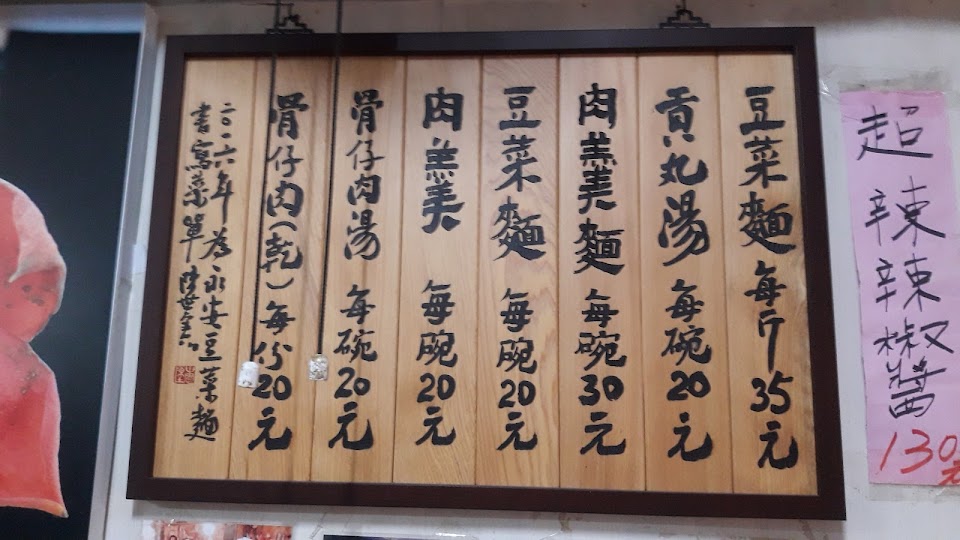 豆菜麵 每斤35元
貢丸湯 每碗20元
肉羹麵 每碗30元
豆菜麵 每碗20元
肉羹 每碗20元
骨仔肉湯 每碗20元
骨仔肉(乾) 每份20元
二〇一六年 為永安豆菜麵
書寫菜單
超辣辣椒醬
130元